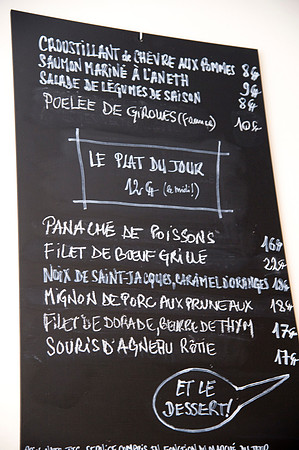 CROUSTILLANT de CHÈVRE AUX POMMES 8€
SAUMON MARINÉ À L'ANETH 9€
SALADE DE LÉGUMES DE SAISON 8€
POELÉE DE GIROLLES (France) 10€
LE PLAT DU JOUR
12€ (le midi!)
PANACHÉ DE POISSONS 16€
FILET DE BŒUF GRILLÉ 22€
NOIX DE SAINT-JACQUES, CARAMEL D'ORANGES 18€
MIGNON DE PORC AUX PRUNEAUX 18€
FILET DE DORADE, BEURRE DE THYM 17€
SOURIS D'AGNEAU RÔTIE 17€
ET LE
DESSERT!
SERVICE COMPRIS EN FONCTION DU MARCHÉ DU